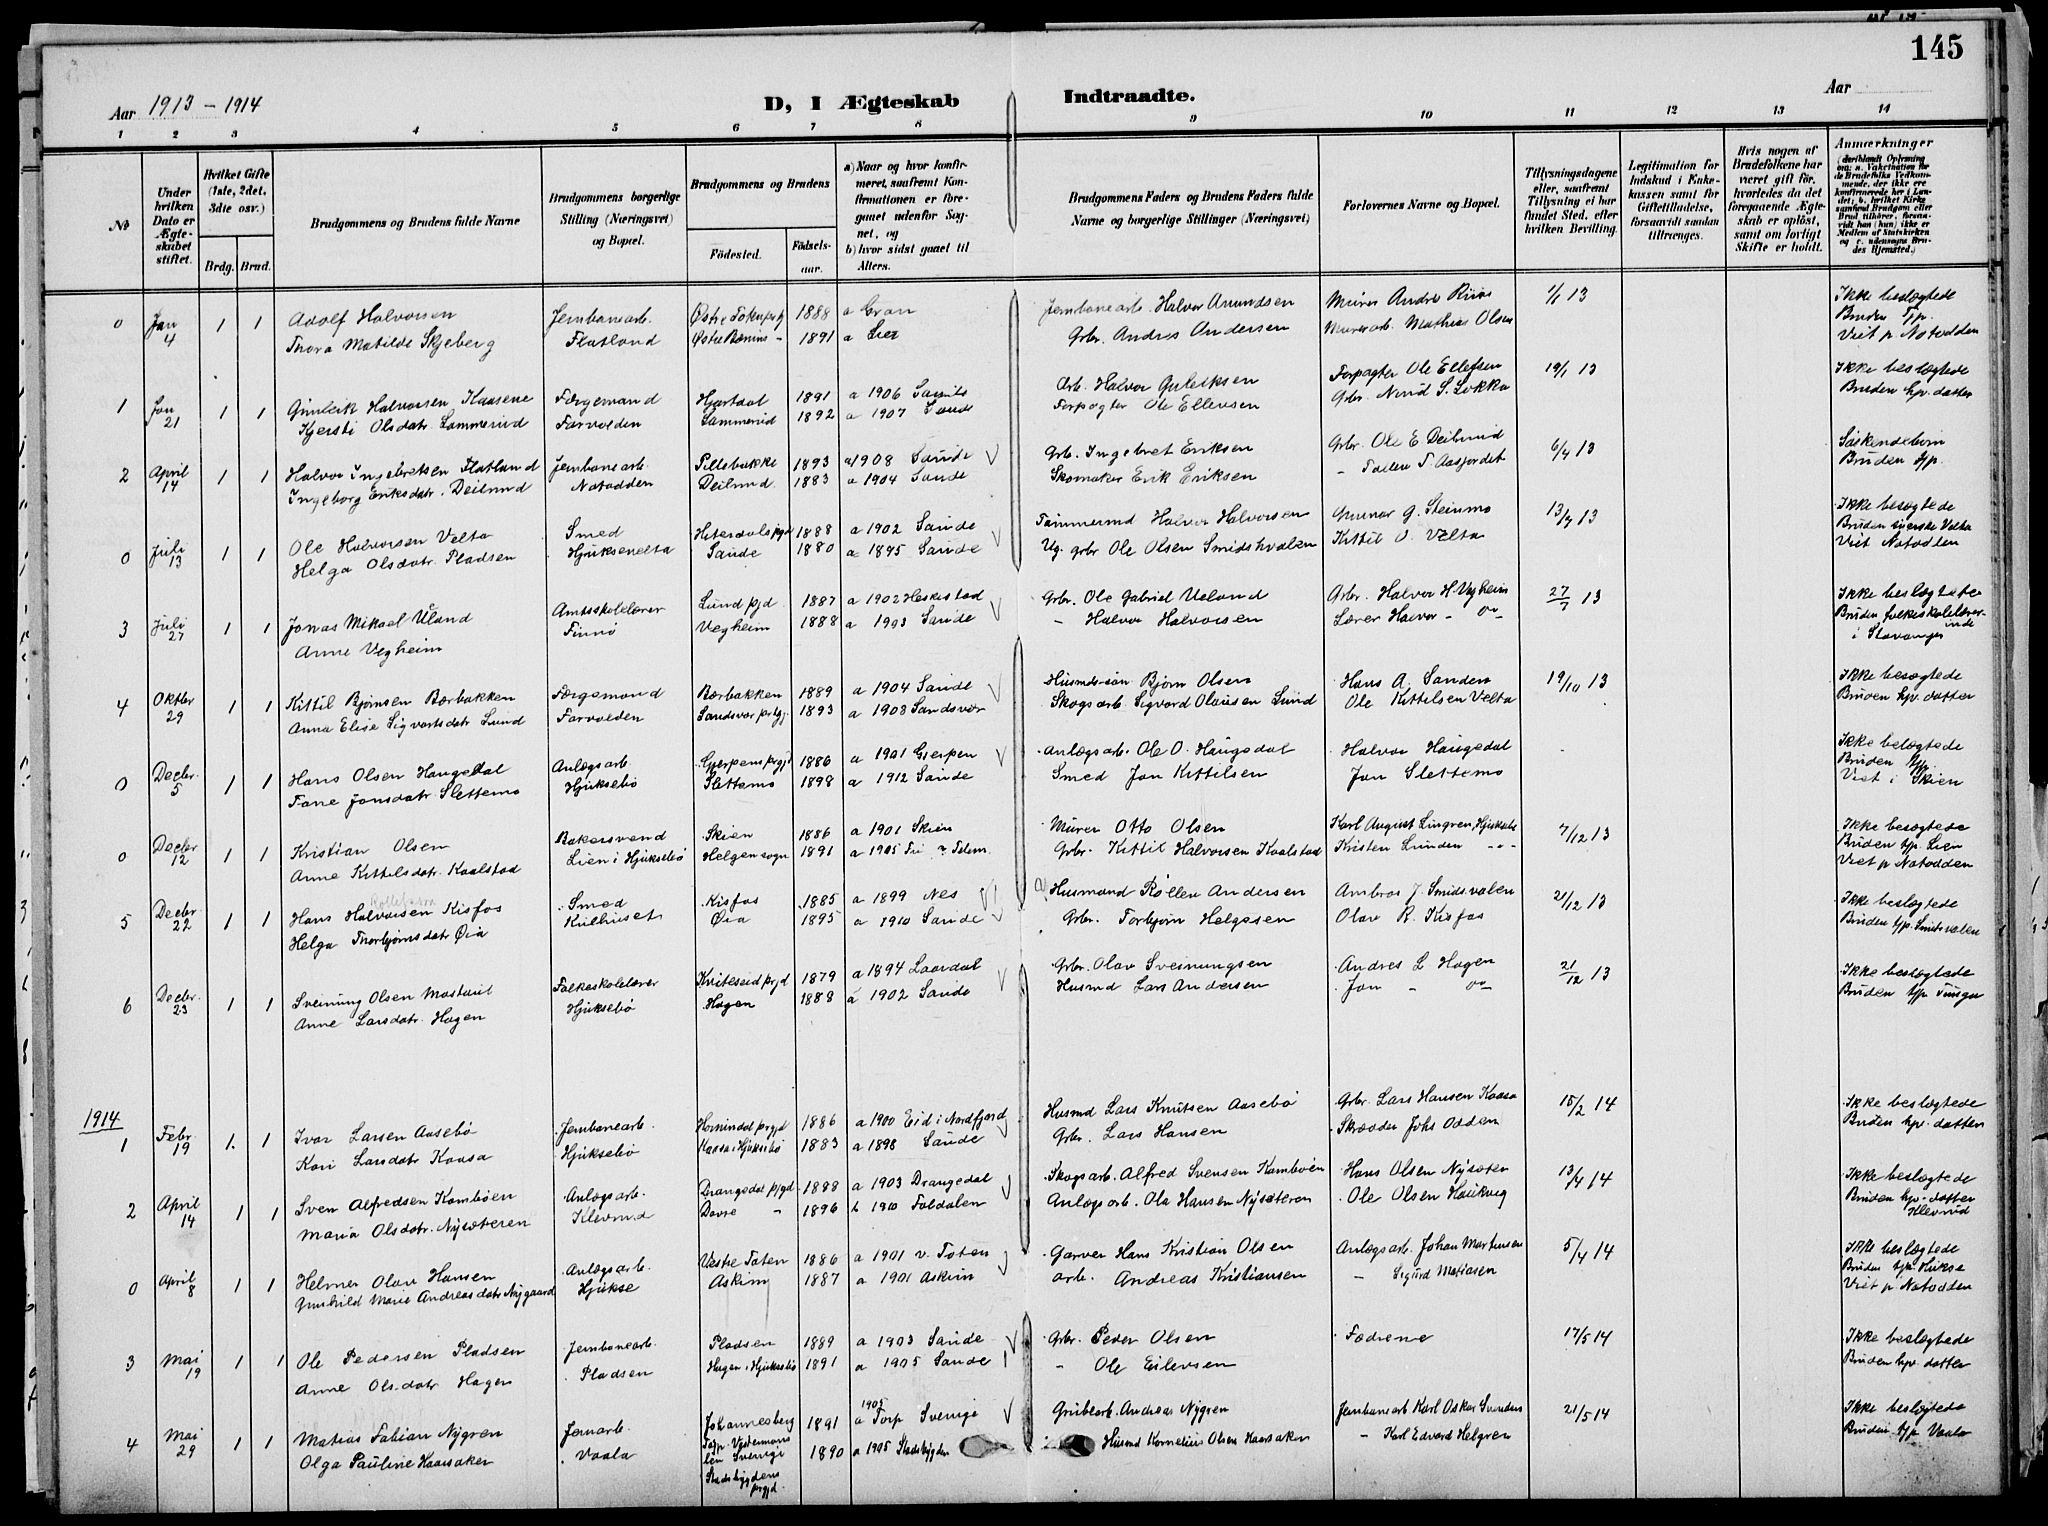 145
Aar 1913 – 1914
D, I Ægteskab Indtraadte.
Aar
1 2 3 4 5 6 7 8 9 10 11 12 13 14
No
Under hvilken Dato er Ægteskabet stiftet.
Hvilket Gifte (1ste, 2det, 3die osv.)
Brdg. Brud.
Brudgommens og Brudens fulde Navne
Brudgommens borgerlige Stilling (Næringsvei) og Bopæl.
Brudgommens og Brudens
Födested. Födselsaar.
a) Naar og hvor konfirmeret, saafremt Konfirmationen er foregaaet udenfor Sognet, og
b) hvor sidst gaaet til Alters.
Brudgommens Faders og Brudens Faders fulde Navne og borgerlige Stillinger (Næringsvei)
Forlovernes Navne og Bopæl.
Tillysningsdagene eller, saafremt Tillysning ei har fundet Sted, efter hvilken Bevilling.
Legitimation for Indskud i Enkekassen samt for Giftetilladelse, forsaavidt saadan tiltrænges.
Hvis nogen af Brudefolkene har været gift för, hvorledes da det foregaaende Ægteskab er oplöst, samt om lovligt Skifte er holdt.
Anmærkninger
0 Jan 4 1 1 Adolf Halvorsen Jernbanearb. 1888 a Gran Jernbanearb. Halvor Amundsen Murer 1/1 13 Ikke beslægtede
Thora Matilde Skjeberg Flatland 1891 a Lier Grbr. Andres Andersen Murerarb. Mathias Olsen Bruden
Viet p. Notodden
1 Jan 21 1 1 Halvorsen Færgemand Hjartdal 1891 a 1906 Arb. Halvor Forpagter Ole Ellefsen 19/1 13 Ikke beslægtede
Kjersti Olsdatr. Lammerud Farvolden Lammerud 1892 a 1907 Sande Forpagter Ole Ellevsen Grbr. S. Lokka Bruden hjv. datter
2 April 14 1 1 Halvor Ingebretsen Flatland Jernbanearb. Tillebakke 1893 a 1908 Sande Grbr. Ingebret Eriksen Grbr. Ole E Deilrud 6/4 13 Söskendebörn
Ingeborg Eriksdatr. Deilrud Notodden Deilrud 1883 a 1904 Sande Skomaker Erik Eriksen – T. Aasfordet Bruden
0 Juli 13 1 1 Ole Halvorsen Velta Smed Hiterdals prgd 1888 a 1902 Sande Tömmermd Halvor Halvorsen Gunnar G. Steinmo 13/7 13 Ikke beslægtede
Helga Olsdatr. Pladsen Hjuksevelta Sande 1880 a 1895 Sande Ug. grbr Ole Olsen Smidshvalen Kittil O. Velta Bruden Velta
Viet Notodden
3 Juli 27 1 1 Jonas Mikael Uland Amtsskolelærer Lund pjd 1887 a 1902 Heskestad Grbr. Ole Gabriel Ueland Grbr. Halvor H. Vegheim 27/7 13 Ikke beslægtede
Anne Vegheim Finnö Vegheim 1888 a 1903 Sande – Halvor Halvorsen Lærer Halvor – Bruden folkeskolelærerinde
i Stavanger
4 Oktbr 29 1 1 Kittil Bjørnsen Bærbakken Færgemand Bærbakken 1889 a 1904 Sande Husmdssön Björn Olsen Hans A. Sanden 19/10 13 Ikke beslægtede
Anna Elise Sigvartsdatr Lund Farvolden Sandsvær prgj. 1893 a 1908 Sandsvær Skogsarb. Sigvard Olausen Lund Ole Kittilsen Velta Bruden hjv. datter
0 Decbr. 5 1 1 Hans Olsen Haugedal Anlægsarb. Gjerpens prgjd 1886 a 1901 Gjerpen Anlægsarb. Ole O. Haugedal Halvor Haugedal Ikke belægtede
Jonsdatr. Slettemo Hjuksebö Slettemo 1898 a 1912 Sande Smed Jon Kittilsen Jon Slettemo Bruden
Viet i Skien
0 Decbr 12 1 1 Kristian Olsen Bakersvend Skien 1886 a 1901 Skien Murer Otto Olsen Karl August Lingren, Hjuksebö 7/12 13 Ikke beslægtede
Anne Kittilsdatr. Kaalstad Lien i Hjuksebö Helgen sogn 1891 a 1905 Grbr. Kittil Halvorsen Kaalstad Kristen Lunden Bruden Lien
Viet p Notodden
5 Decbr 22 1 1 Hans Halvorsen Kisfos Smed Kisfos 1885 a 1899 Nes Husmand Röllev Andersen Ambros J. Smidsvalen 21/12 13 Ikke beslægtede
Helga Thorbjørnsdatr Øia Kulhuset Øia 1895 a 1910 Sande Grbr. Torbjørn Helgesen Olav R. Kisfos Bruden Smidsvalen
6 Decbr. 23 1 1 Sveinung Olsen Folkeskolelærer Kviteseid prjd 1879 a 1894 Laardal Grbr. Olav Sveinungsen Andres L Hagen 21/12 13 Ikke beslægtede
Anne Larsdatr. Hagen Hjuksebö Hagen 1888 a 1902 Sande Husmd Lars Andersen Jon – Bruden
1914
1 Febr 19 1 1 Ivar Larsen Aasebö Jernbanearb. Hornindal prgjd 1886 a 1900 Eid i Nordfjord Husmd Lars Knutsen Aasebö Grbr. Lars Hansen Kaasa 15/2 14 Ikke beslægtede
Kari Larsdatr Kaasa Hjuksebö Kaasa i Hjuksebö 1883 a 1898 Sande Grbr. Lars Hansen Skrædder Johs Odden Bruden hjv. datter
2 April 14 1 1 Sven Alfredsen Kamböen Anlægsarb. Drangedal pjgd 1888 a 1903 Drangedal Skogsarb. Alfred Svensen Kamböen Hans Olsen Nysæter 13/4 14 Ikke beslægtede
Maria Olsdatr. Nysæteren Klevrud Dovre – 1896 b 1910 Foldalen Anlægsarb. Ola Hansen Nysæteren Ole Olsen Haukvig Bruden hjv. datter
Klevrud
0 April 8 1 1 Helmer Olav Hansen Anlægsarb. Vestre Toten 1886 a 1901 v. Toten Garver Hans Kristian Olsen Anlægsarb. Johan Martinsen 5/4 14 Ikke beslægtede
Gunhild Marie Andreasdatr Nygaard Hjukse Askim 1887 a 1901 Askim arb. Andreas Kristiansen – Sigurd Matiasen Bruden Hukse
Viet p Notodden
3 Mai 19 1 1 Ole Pedersen Pladsen Jernbanearb. Pladsen 1889 a 1903 Sande Grbr. Peder Olsen Fædrene 17/5 14 Ikke beslægtede
Anne Olsdatr Hagen Pladsen Hagen i Hjuksebö 1891 a 1905 Sande – Ole Eilevsen Bruden hjv. datter
4 Mai 29 1 1 Matias Fabian Nygren Jernarb. Johannesberg 1891 1905 a Torp Sverige Grubearb. Andreas Nygren Jernbanearb Karl Oskar 21/5 14 Ikke beslægtede
Olga Pauline Kaarsaker Vaala len Sverige 1890 a 1905 Stadsbygden Husmd Kornelius Olsen Kaarsaker – Karl Edvard Helgren Bruden Vaala
Stadsbygdens prgjd.